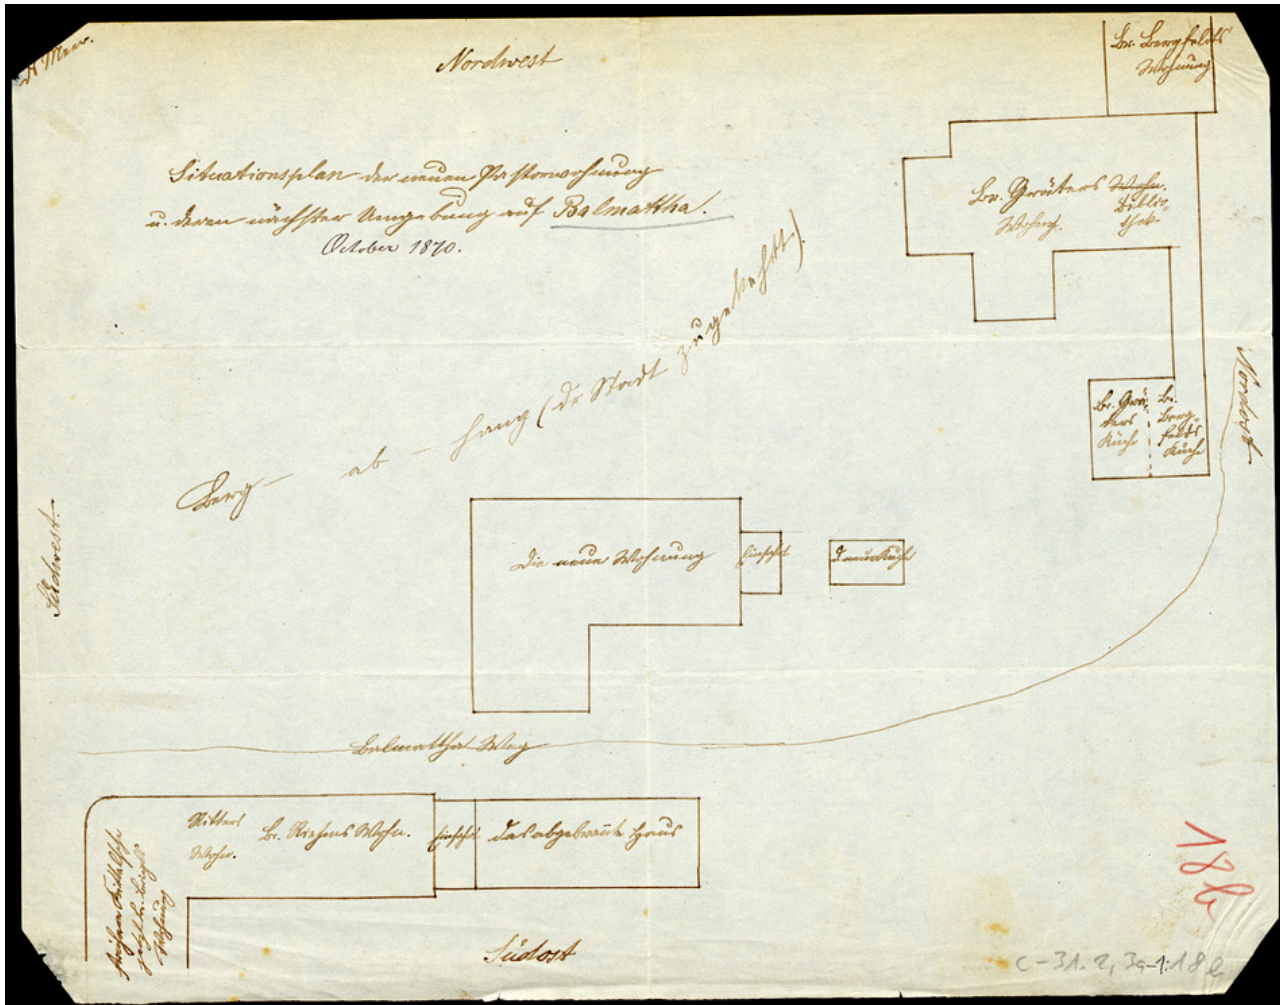 Z. Meer.
Nordwest
Br. Bergfeldts
Wohnung
Situationsplan der neuen Pastorwohnung
u. deren nächster Umgebung auf Balmattha.
October 1870.
Br. Gräters Wohn.
Wohng.
Biblio-
thek
Berg - ab - hang (der Stadt zugekehrt).
Nordost
Br. Grä-
ters
Küche
Br.
Berg-
feldts
Küche
Südwest.
Die neue Wohnung
Einfahrt
d. neue Küche
Balmattha Weg
Ritters
Wohn.
Br. Riehms Wohn.
Einfahrt
das abgebrannte Haus
jetzt Br.
Wohnung
Südost
18b
C-31.2, 3a-1:18b